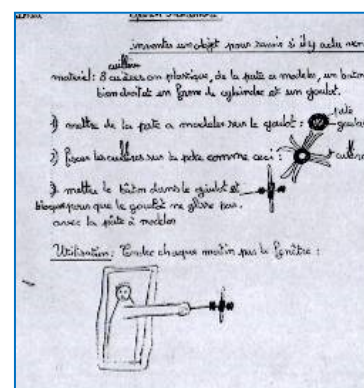 inventer un objet pour savoir si il y a du ven
cuillère
matériel : 8 cuillères en plastique, de la pate a modeler, un bâton
bien droit et en forme de cylindre et un goulot.
1) mettre de la pate a modeler sur le goulot : pate
goulot
2) fixer les cuillères sur la pate comme ceci : cuillère
3) mettre le bâton dans le goulot et
bloquer pour que le goulot ne glisse pas.
avec la pâte à modeler
Utilisation : Tendre chaque matin par la fenêtre :